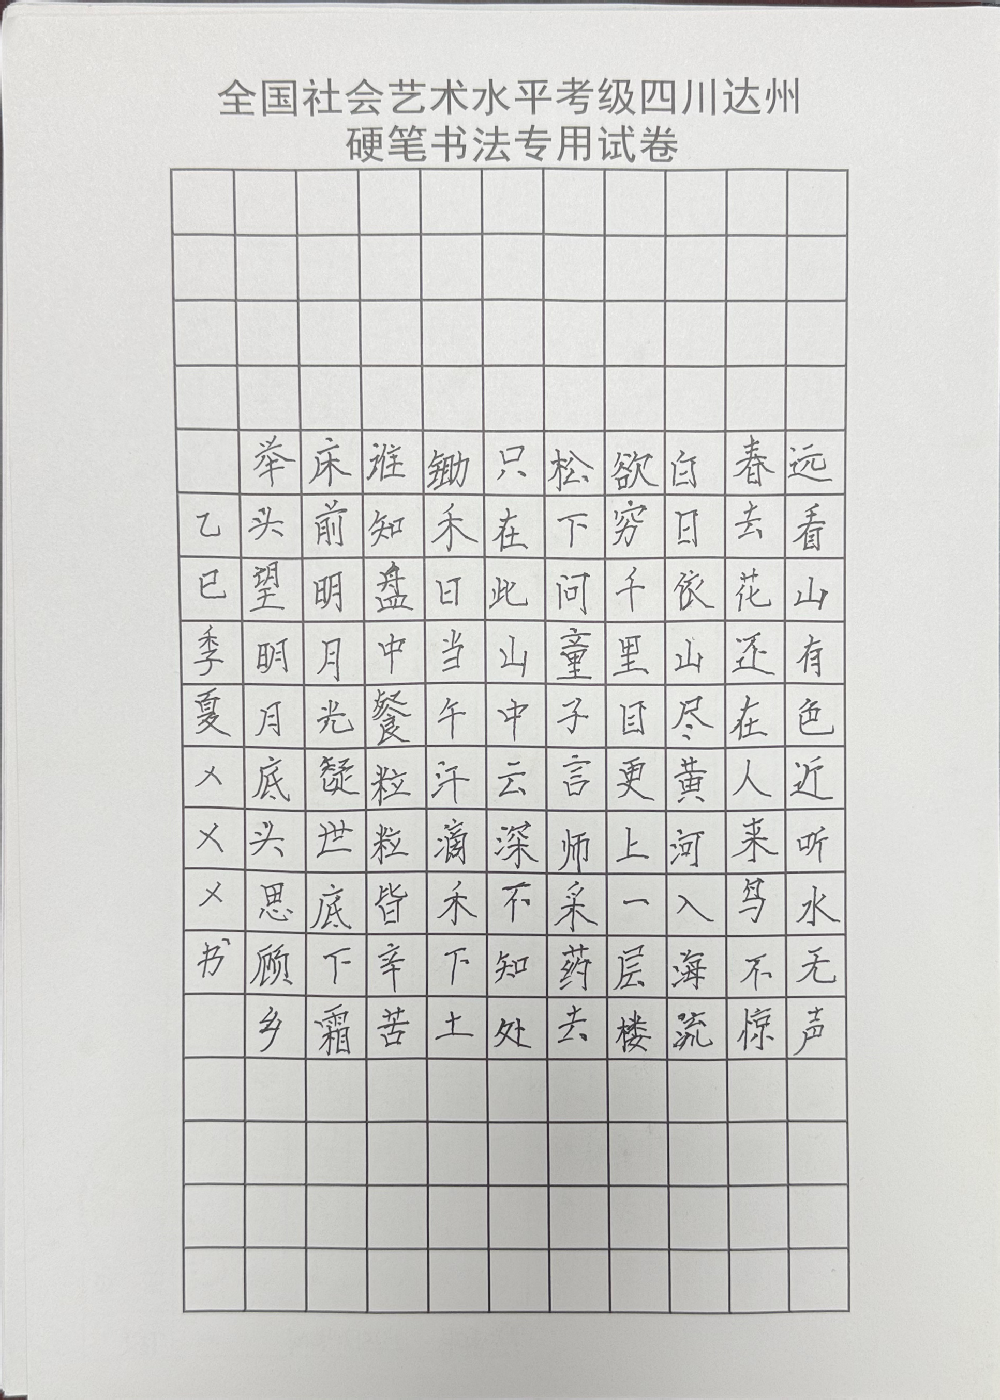 全国社会艺术水平考级四川达州
硬笔书法专用试卷
远看山有色近听水无声
春去花还在人来鸟不惊
白日依山尽黄河入海流
欲穷千里目更上一层楼
松下问童子言师采药去
只在此山中云深不知处
锄禾日当午汗滴禾下土
谁知盘中餐粒粒皆辛苦
床前明月光疑世底下霜
举头望明月底头思顾乡
乙巳季夏×××书